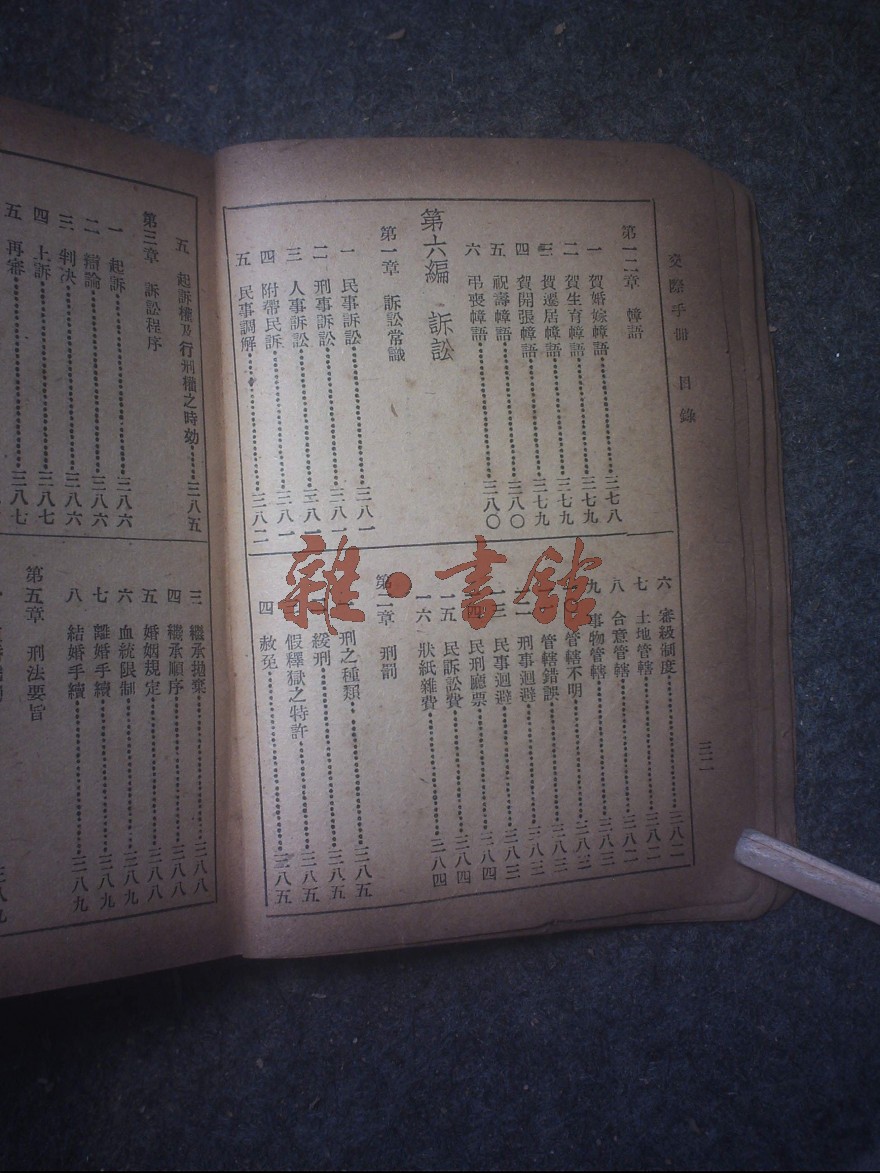 交際手冊 目錄
三二
第一二章 幛語
一 賀婚嫁幛語 三七八
二 賀生育幛語 三七九
三 賀遷居幛語 三七九
四 賀開張幛語 三七九
五 祝壽幛語 三八〇
六 弔喪幛語 三八〇
第六編 訴訟
第一章 訴訟常識
一 民事訴訟 三八一
二 刑事訴訟 三八一
三 人事訴訟 三八一
四 附帶民訴 三八一
五 民事調解 三八二
六 審級制度 三八二
七 土地管轄 三八二
八 合意管轄
九 事物管轄 三八三
管轄不明 三八三
管轄錯誤 三八三
一二 刑事迴避 三八三
一三 民事迴避 三八三
民刑廳票 三八四
一五 民訴訟費 三八四
一六 狀紙雜費 三八四
第二章 刑罰
刑之種類 三八五
緩刑 三八五
假釋獄之特許 三八五
四 赦免 三八五
五 起訴權及行刑權之時効 三八五
第三章 訴訟程序
一 起訴 三八六
二 辯論 三八六
三 判决 三八六
四 上訴 三八七
五 再審 三八七
三 繼承拋棄 三八八
四 繼承順序 三八八
五 婚姻規定 三八八
六 血統限制 三八九
七 離婚手續 三八九
八 結婚手續 三八九
第五章 刑法要旨
雜·書館